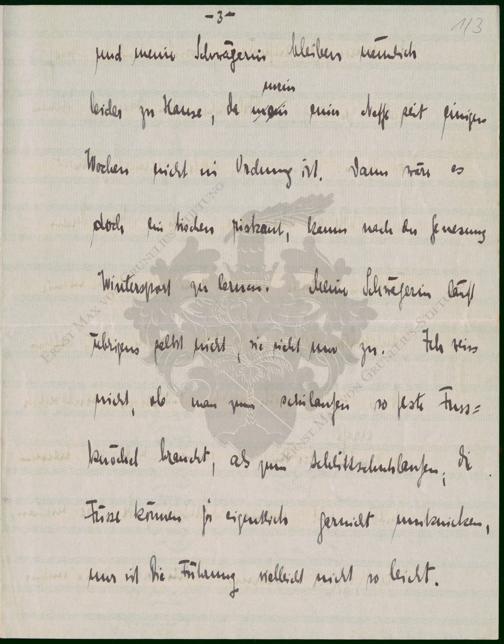 -3-
1/3
und meine Schwägerin bleiben nämlich
mein
leider zu Hause, da mein Neffe seit einigen
Wochen nicht in Ordnung ist. Dann wäre es
doch ein bischen riskant, kaum nach der Genesung
Wintersport zu lernen. Meine Schwägerin läuft
übrigens selbst nicht, sie sieht nur zu. Ich weiss
nicht, ob man zum schilaufen so feste Fuss=
knöchel braucht, als zum Schlittschuhlaufen, die
Füsse können ja eigentlich garnicht umknicken,
nur ist die Führung vielleicht nicht so leicht.
ERNST MAX VON GRUNELIUS-STIFTUNG
ERNST MAX VON GRUNELIUS-STIFTUNG